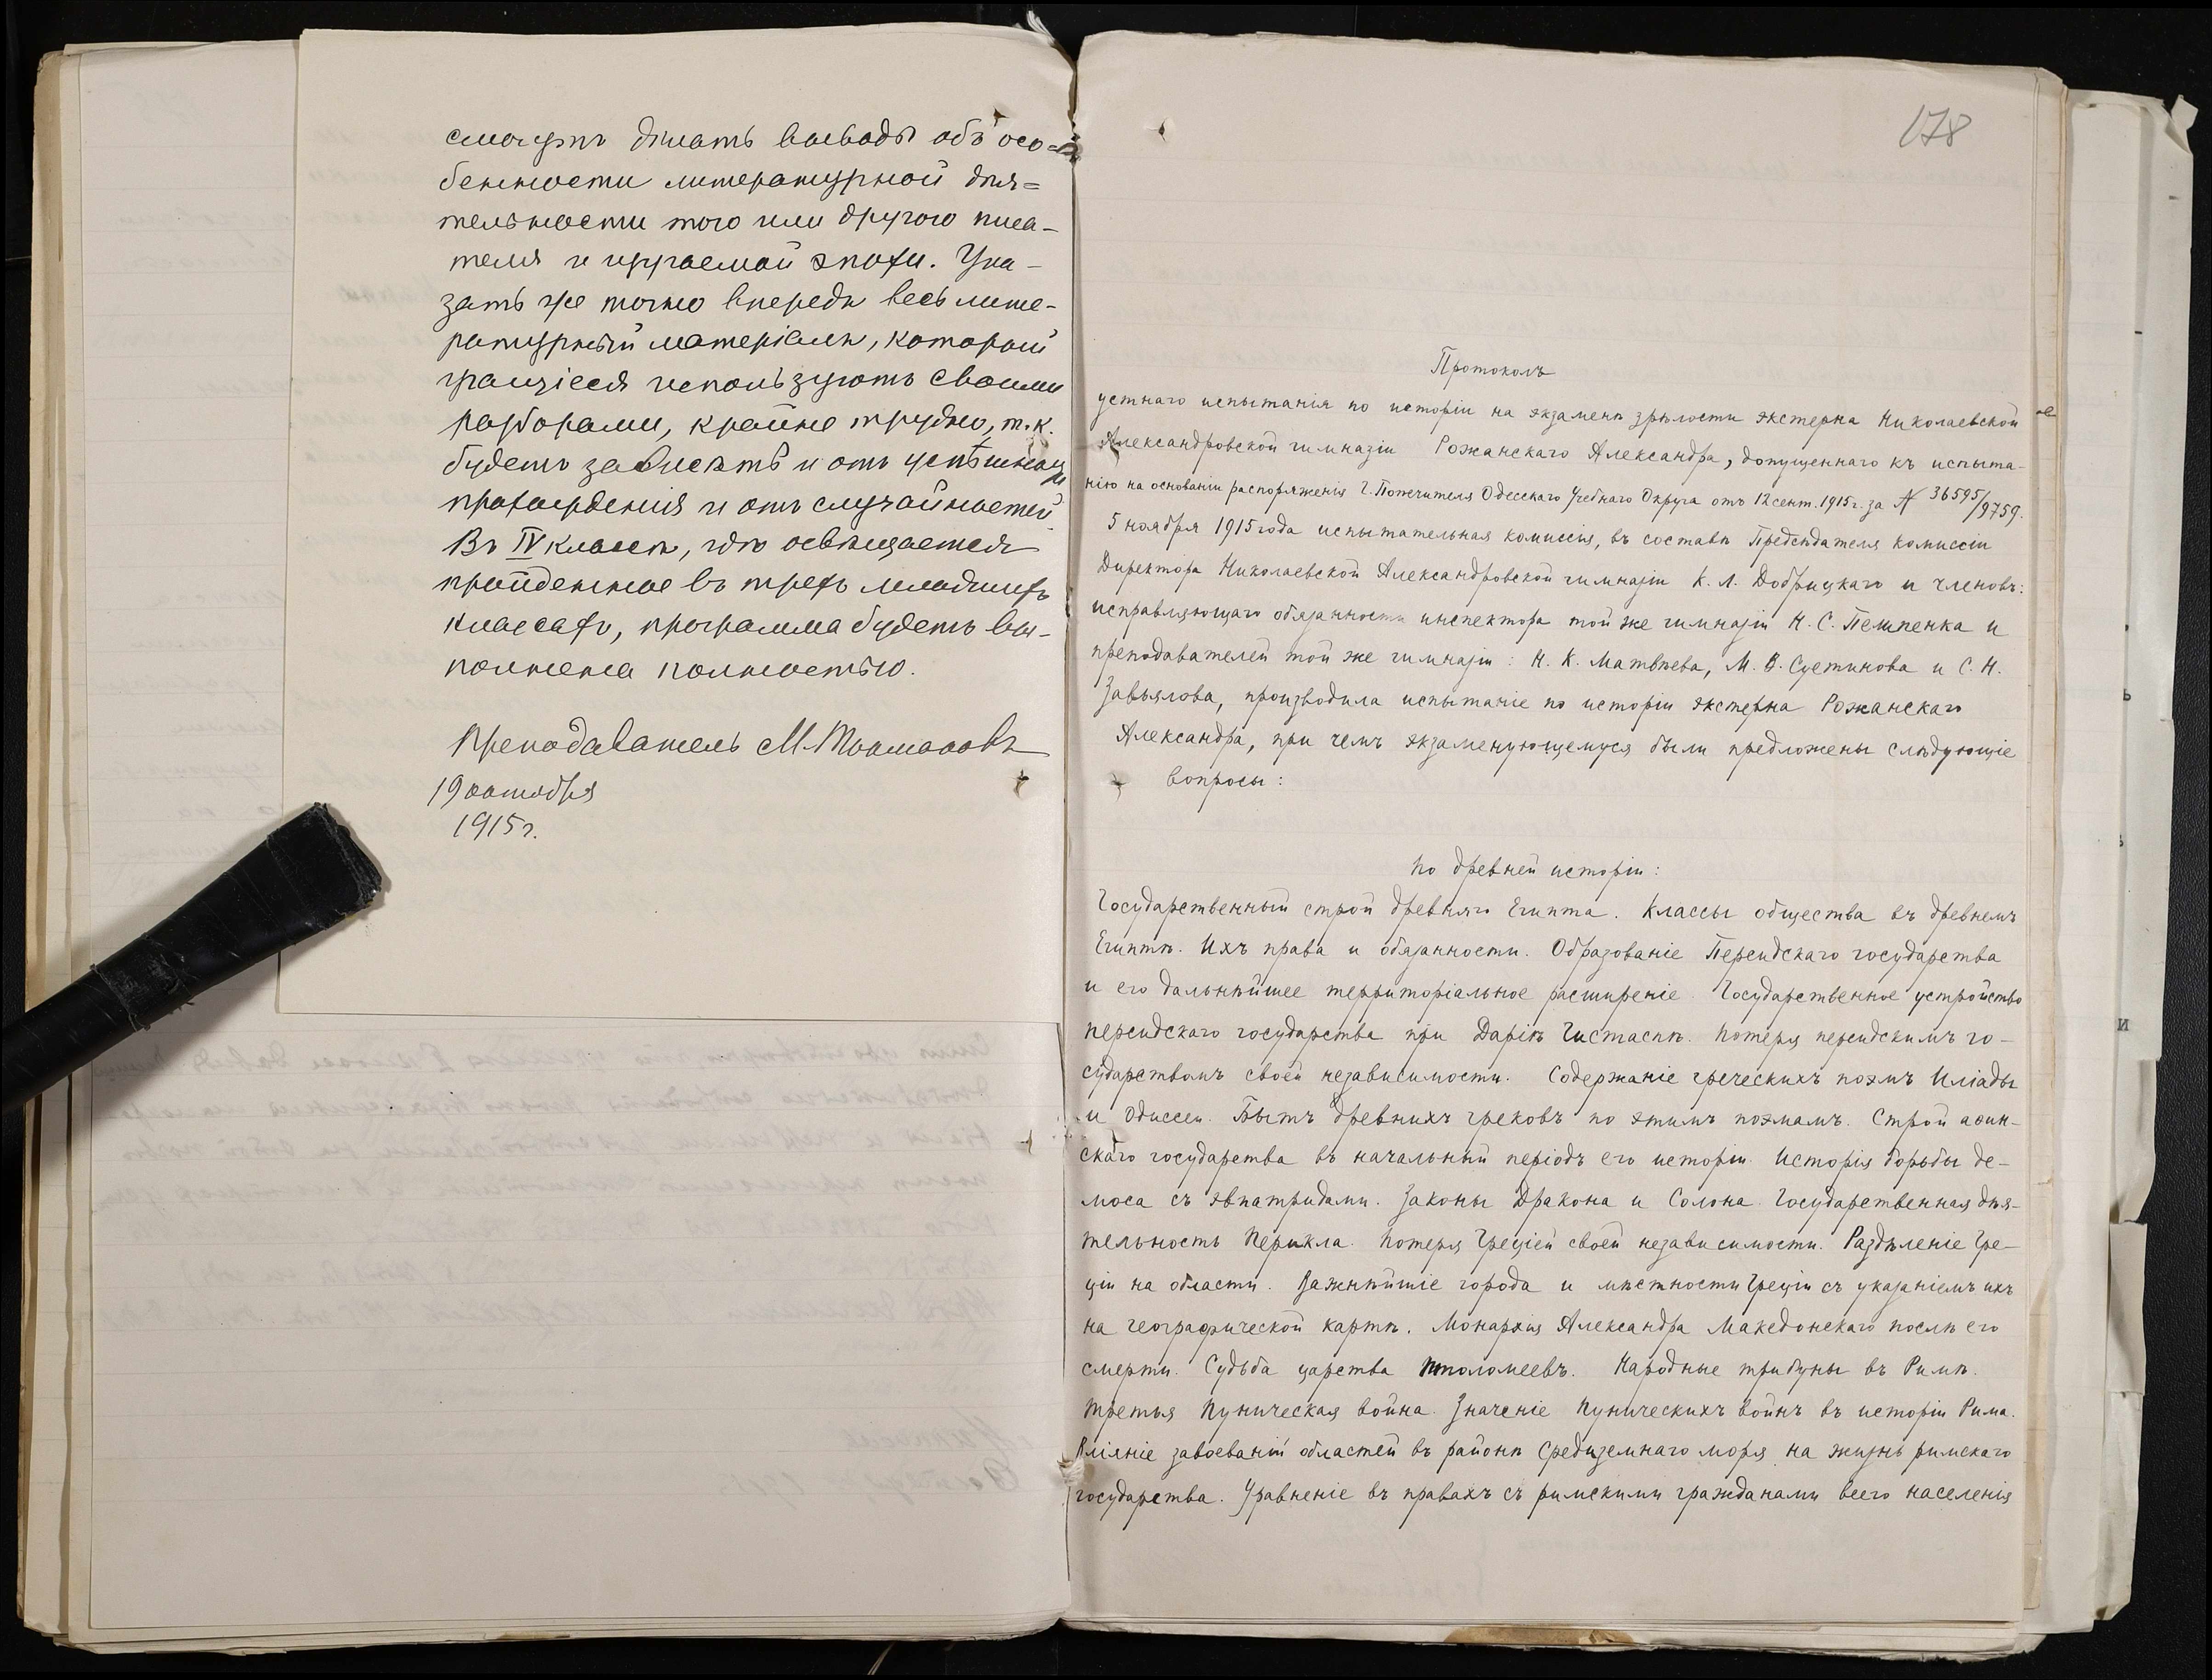 смогутъ дѣлать выводы объ осо-
бенности литературной дѣя=
тельности того или другого писа-
теля и изучаемой эпохи. Ука-
зать же точно впередъ весь лите-
ратурный матеріалъ, который
учащіеся используютъ своими
разборами, крайне трудно, т.к.
будетъ зависѣть и отъ успѣшнаго
прохожденія и отъ случайностей.
Въ IV классѣ, гдѣ освѣщается
пройденное въ трехъ младшихъ
классахъ, программа будетъ вы-
полнена полностью.
Преподаватель М.
19 октября
1915 г.
178
Протоколъ
устнаго испытанія по исторіи на экзаменъ зрѣлости экстерна Николаевской
Александровской гимназіи Рожанскаго Александра, допущеннаго къ испыта-
нію на основаніи распоряженія Г. Попечителя Одесскаго Учебнаго Округа отъ 12 сент. 1915 г. за № 36595/9759.
5 ноября 1915 года испытательная комиссія, въ составѣ Предсѣдателя комиссіи
Директора Николаевской Александровской гимназіи К. Л. Добрицкаго и членовъ:
исправляющаго обязанности инспектора той же гимназіи Н. С. Пемпенка и
преподавателей той же гимназіи: Н. К. Матвѣева, М. В. Суетинова и С. Н.
Завьялова, производила испытаніе по исторіи экстерна Рожанскаго
Александра, при чемъ экзаменующемуся были предложены слѣдующіе
вопросы:
По древней исторіи:
Государственный строй древняго Египта. Классы общества въ древнемъ
Египтѣ. Ихъ права и обязанности. Образованіе Персидскаго государства
и его дальнѣйшее территоріальное расширеніе. Государственное устройство
персидскаго государства при Даріѣ Гистаспѣ. Потеря персидскимъ го-
сударствомъ своей независимости. Содержаніе греческихъ поэмъ Иліады
и Одиссеи. Бытъ древнихъ грековъ по этимъ поэмамъ. Строй аѳин-
скаго государства въ начальный періодъ его исторіи. Исторія борьбы де-
моса съ эвпатридами. Законы Дракона и Солона. Государственная дѣя-
тельность Перикла. Потеря Греціей своей независимости. Раздѣленіе Гре-
ціи на области. Важнѣйшіе города и мѣстности Греціи съ указаніемъ ихъ
на географической картѣ. Монархія Александра Македонскаго послѣ его
смерти. Судьба царства Птоломеевъ. Народные трибуны въ Римѣ.
Третья Пуническая война. Значеніе Пуническихъ войнъ въ исторіи Рима.
Вліяніе завоеваній областей въ районѣ Средиземнаго моря на жизнь римскаго
государства. Уравненіе въ правахъ съ римскими гражданами всего населенія